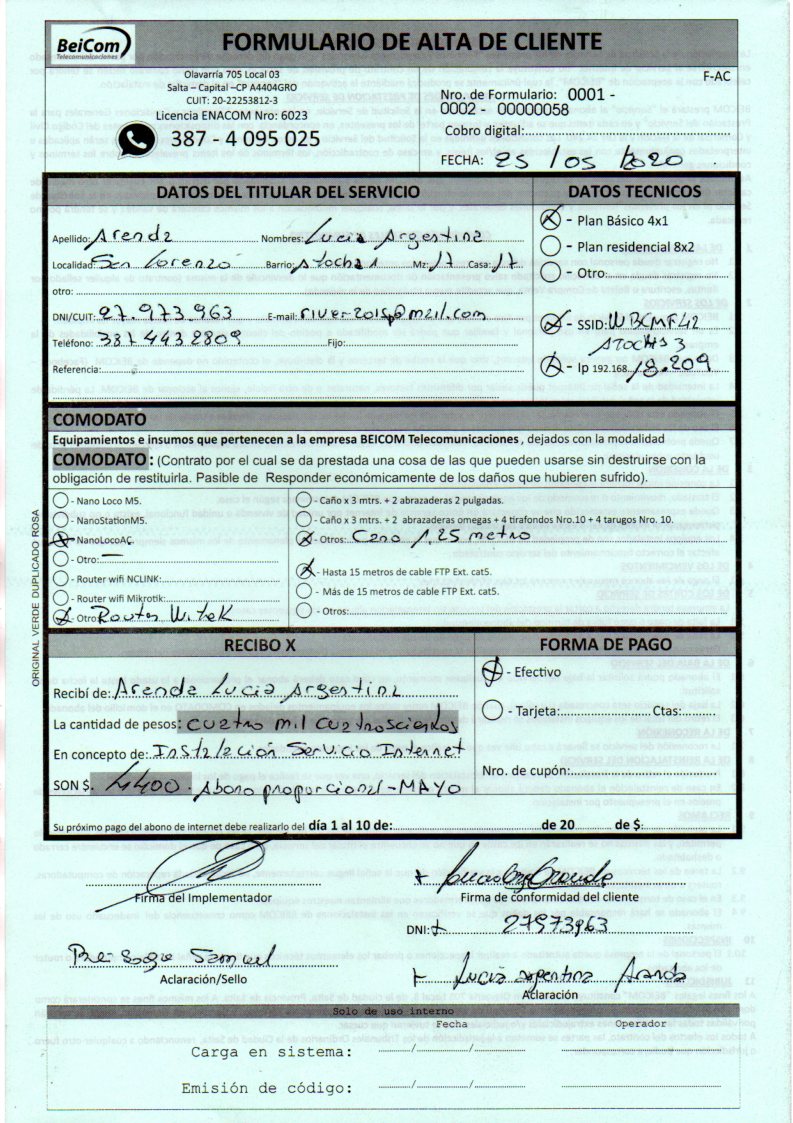 BeiCom)
Telecomunicaciones
FORMULARIO DE ALTA DE CLIENTE
Olavarría 705 Local 03
Salta – Capital –CP A4404GRO
CUIT: 20-22253812-3
Licencia ENACOM Nro: 6023
387 - 4 095 025
F-AC
Nro. de Formulario: 0001 -
0002 - 00000058
Cobro digital:
FECHA: 25 / 05 / 2020
DATOS DEL TITULAR DEL SERVICIO
Apellido: Aranda Nombres: Lucia Argentina
Localidad: San Lorenzo Barrio: Atocha 1 Mz: 17 Casa: 17
otro:
DNI/CUIT: 27.973.963 E-mail: river2015p@mail.com
Teléfono: 387 443 2809 Fijo:
Referencia:
DATOS TECNICOS
- Plan Básico 4x1
- Plan residencial 8x2
- Otro:
- SSID: WBCMF42
ATOCHA 3
- Ip 192.168. 18.209
COMODATO
Equipamientos e insumos que pertenecen a la empresa BEICOM Telecomunicaciones, dejados con la modalidad
COMODATO: (Contrato por el cual se da prestada una cosa de las que pueden usarse sin destruirse con la
obligación de restituirla. Pasible de Responder económicamente de los daños que hubieren sufrido).
- Nano Loco M5.
- NanoStationM5.
- NanoLocoAC.
- Otro:
- Router wifi NCLINK:
- Router wifi Mikrotik:
- Otro: Router Witek
- Caño x 3 mtrs. + 2 abrazaderas 2 pulgadas.
- Caño x 3 mtrs. + 2 abrazaderas omegas + 4 tirafondos Nro.10 + 4 tarugos Nro. 10.
- Otros: Cano 1,25 metro
- Hasta 15 metros de cable FTP Ext. cat5.
- Más de 15 metros de cable FTP Ext. cat5.
- Otros:
ORIGINAL VERDE DUPLICADO ROSA
RECIBO X
Recibí de: Aranda Lucia Argentina
La cantidad de pesos: cuatro mil cuatroscientos
En concepto de: Instalación Servicio Internet
SON $. 4400. Abono proporcional - MAYO
FORMA DE PAGO
- Efectivo
- Tarjeta: Ctas:
Nro. de cupón:
Su próximo pago del abono de internet debe realizarlo del día 1 al 10 de: de 20 de $:
Firma del Implementador
Firma de conformidad del cliente
DNI: 27973963
Samuel
Aclaración/Sello
Lucia argentina Aranda
Aclaración
Solo de uso interno
Fecha Operador
Carga en sistema: / /
Emisión de código: / /